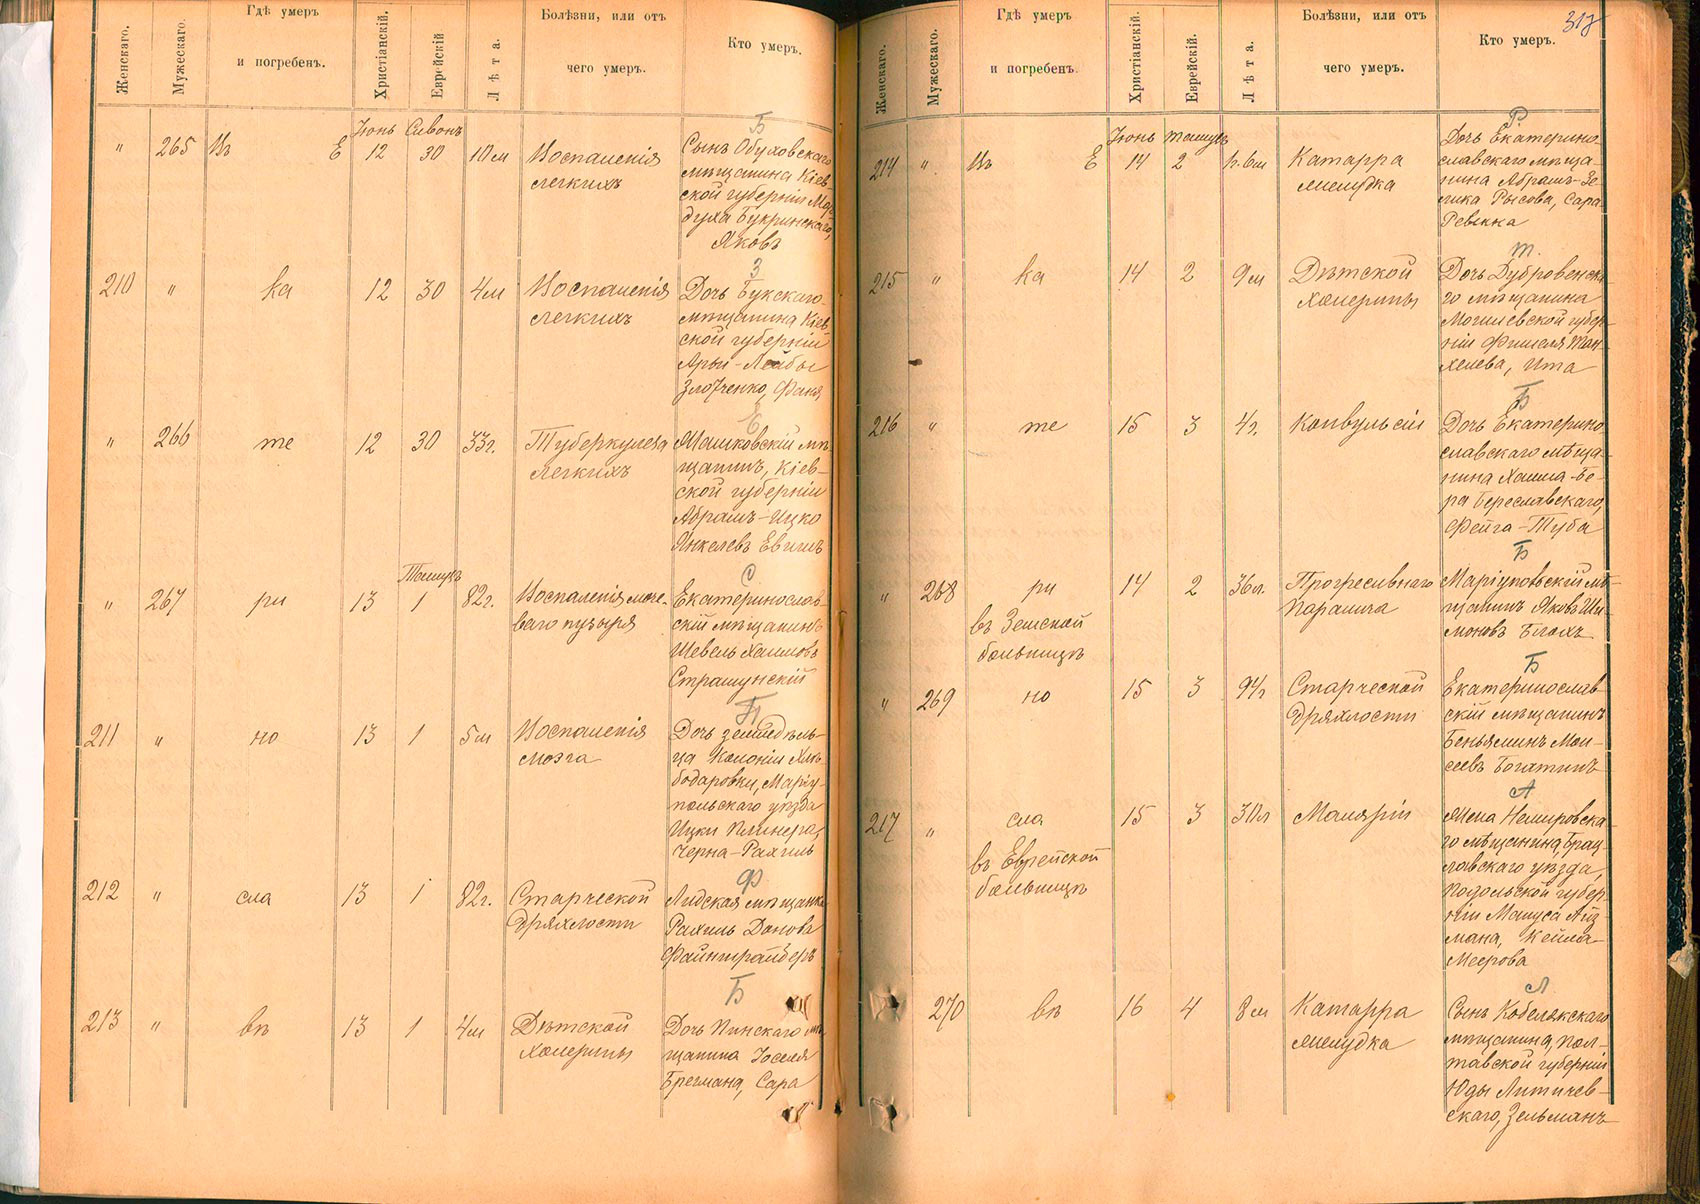 Женскаго.
Мужескаго.
Гдѣ умеръ
и погребенъ.
Христіанскій.
Еврейскій
Лѣта.
Болѣзни, или отъ
чего умеръ.
Кто умеръ.
Іюнь Сивонъ
" 265 Въ Е 12 30 10м
Воспаленія
легкихъ
Б
Сынъ Обуховскаго
мѣщанина Кіев-
ской губерніи Мор-
духа Букринскаго,
Яковъ
210 " ка 12 30 4м
Воспаленія
легкихъ
З
Дочь Букскаго
мѣщанина Кіев-
ской губерніи
Арьи-Лейбы
Злотченко, Фаня
" 266 те 12 30 33г.
Туберкулеза
легкихъ
Е
Машковскій мѣ-
щанинъ, Кіев-
ской губерніи
Абрамъ-Ицко
Янкелевъ Евишъ
Тамузъ
" 267 ри 13 1 82г.
Воспаленія моче-
ваго пузыря
С
Екатеринослав-
скій мѣщанинъ
Шевель Хаимовъ
Страшунскій
211 " но 13 1 5м
Воспаленія
мозга
П
Дочь земледѣль-
ца Колоніи Хлѣ-
бодаровки, Маріу-
польскаго уѣзда
Ицки Плинера,
Черна-Рахиль
212 " сла 13 1 82г.
Старческой
дряхлости
Ф
Лидская мѣщанка
Рахиль Данова
Файнтрайберъ
213 " вѣ 13 1 4м
Дѣтской
холерины
Б
Дочь Пинскаго мѣ-
щанина Іоселя
Брегмана, Сара
317
Женскаго.
Мужескаго.
Гдѣ умеръ
и погребенъ.
Христіанскій.
Еврейскій.
Лѣта.
Болѣзни, или отъ
чего умеръ.
Кто умеръ.
Іюнь Тамузъ
214 " Въ Е 14 2
Катарра
желудка
Р
Дочь Екатерино-
славскаго мѣща-
нина Абрамъ-Зе-
лика Рысова, Сара
Ревекка
215 " ка 14 2 9м
Дѣтской
холерины
Т.
Дочь Дубровенска-
го мѣщанина
Могилевской губер-
ніи Фишеля Тон-
хелева, Ита
216 " те 15 3 4г.
Конвульсіи
Б
Дочь Екатерино-
славскаго мѣща-
нина Хаима-Бе-
ра Береславскаго,
Фейга-Туба
" 268 ри 14 2 36л.
въ Земской
больницѣ
Прогресивнаго
паралича
Б
Маріуповскій мѣ-
щанинъ Яковъ Ши-
моновъ Блохъ
" 269 но 15 3 94г
Старческой
дряхлости
Б
Екатеринослав-
скій мѣщанинъ
Беньяминъ Мои-
сеевъ Богатинъ
217 " сла 15 3 30л
въ Еврейской
больницѣ
Маляріи
А
Жена Немировска-
го мѣщанина, Брац-
лавскаго уѣзда,
Подольской губер-
ніи Мануса Айз-
мана, Кейла
Меерова
270 вѣ 16 4 8м
Катарра
желудка
Л
Сынъ Кобелякскаго
мѣщанина, Пол-
тавской губерніи
Юды Литичев-
скаго, Зельманъ